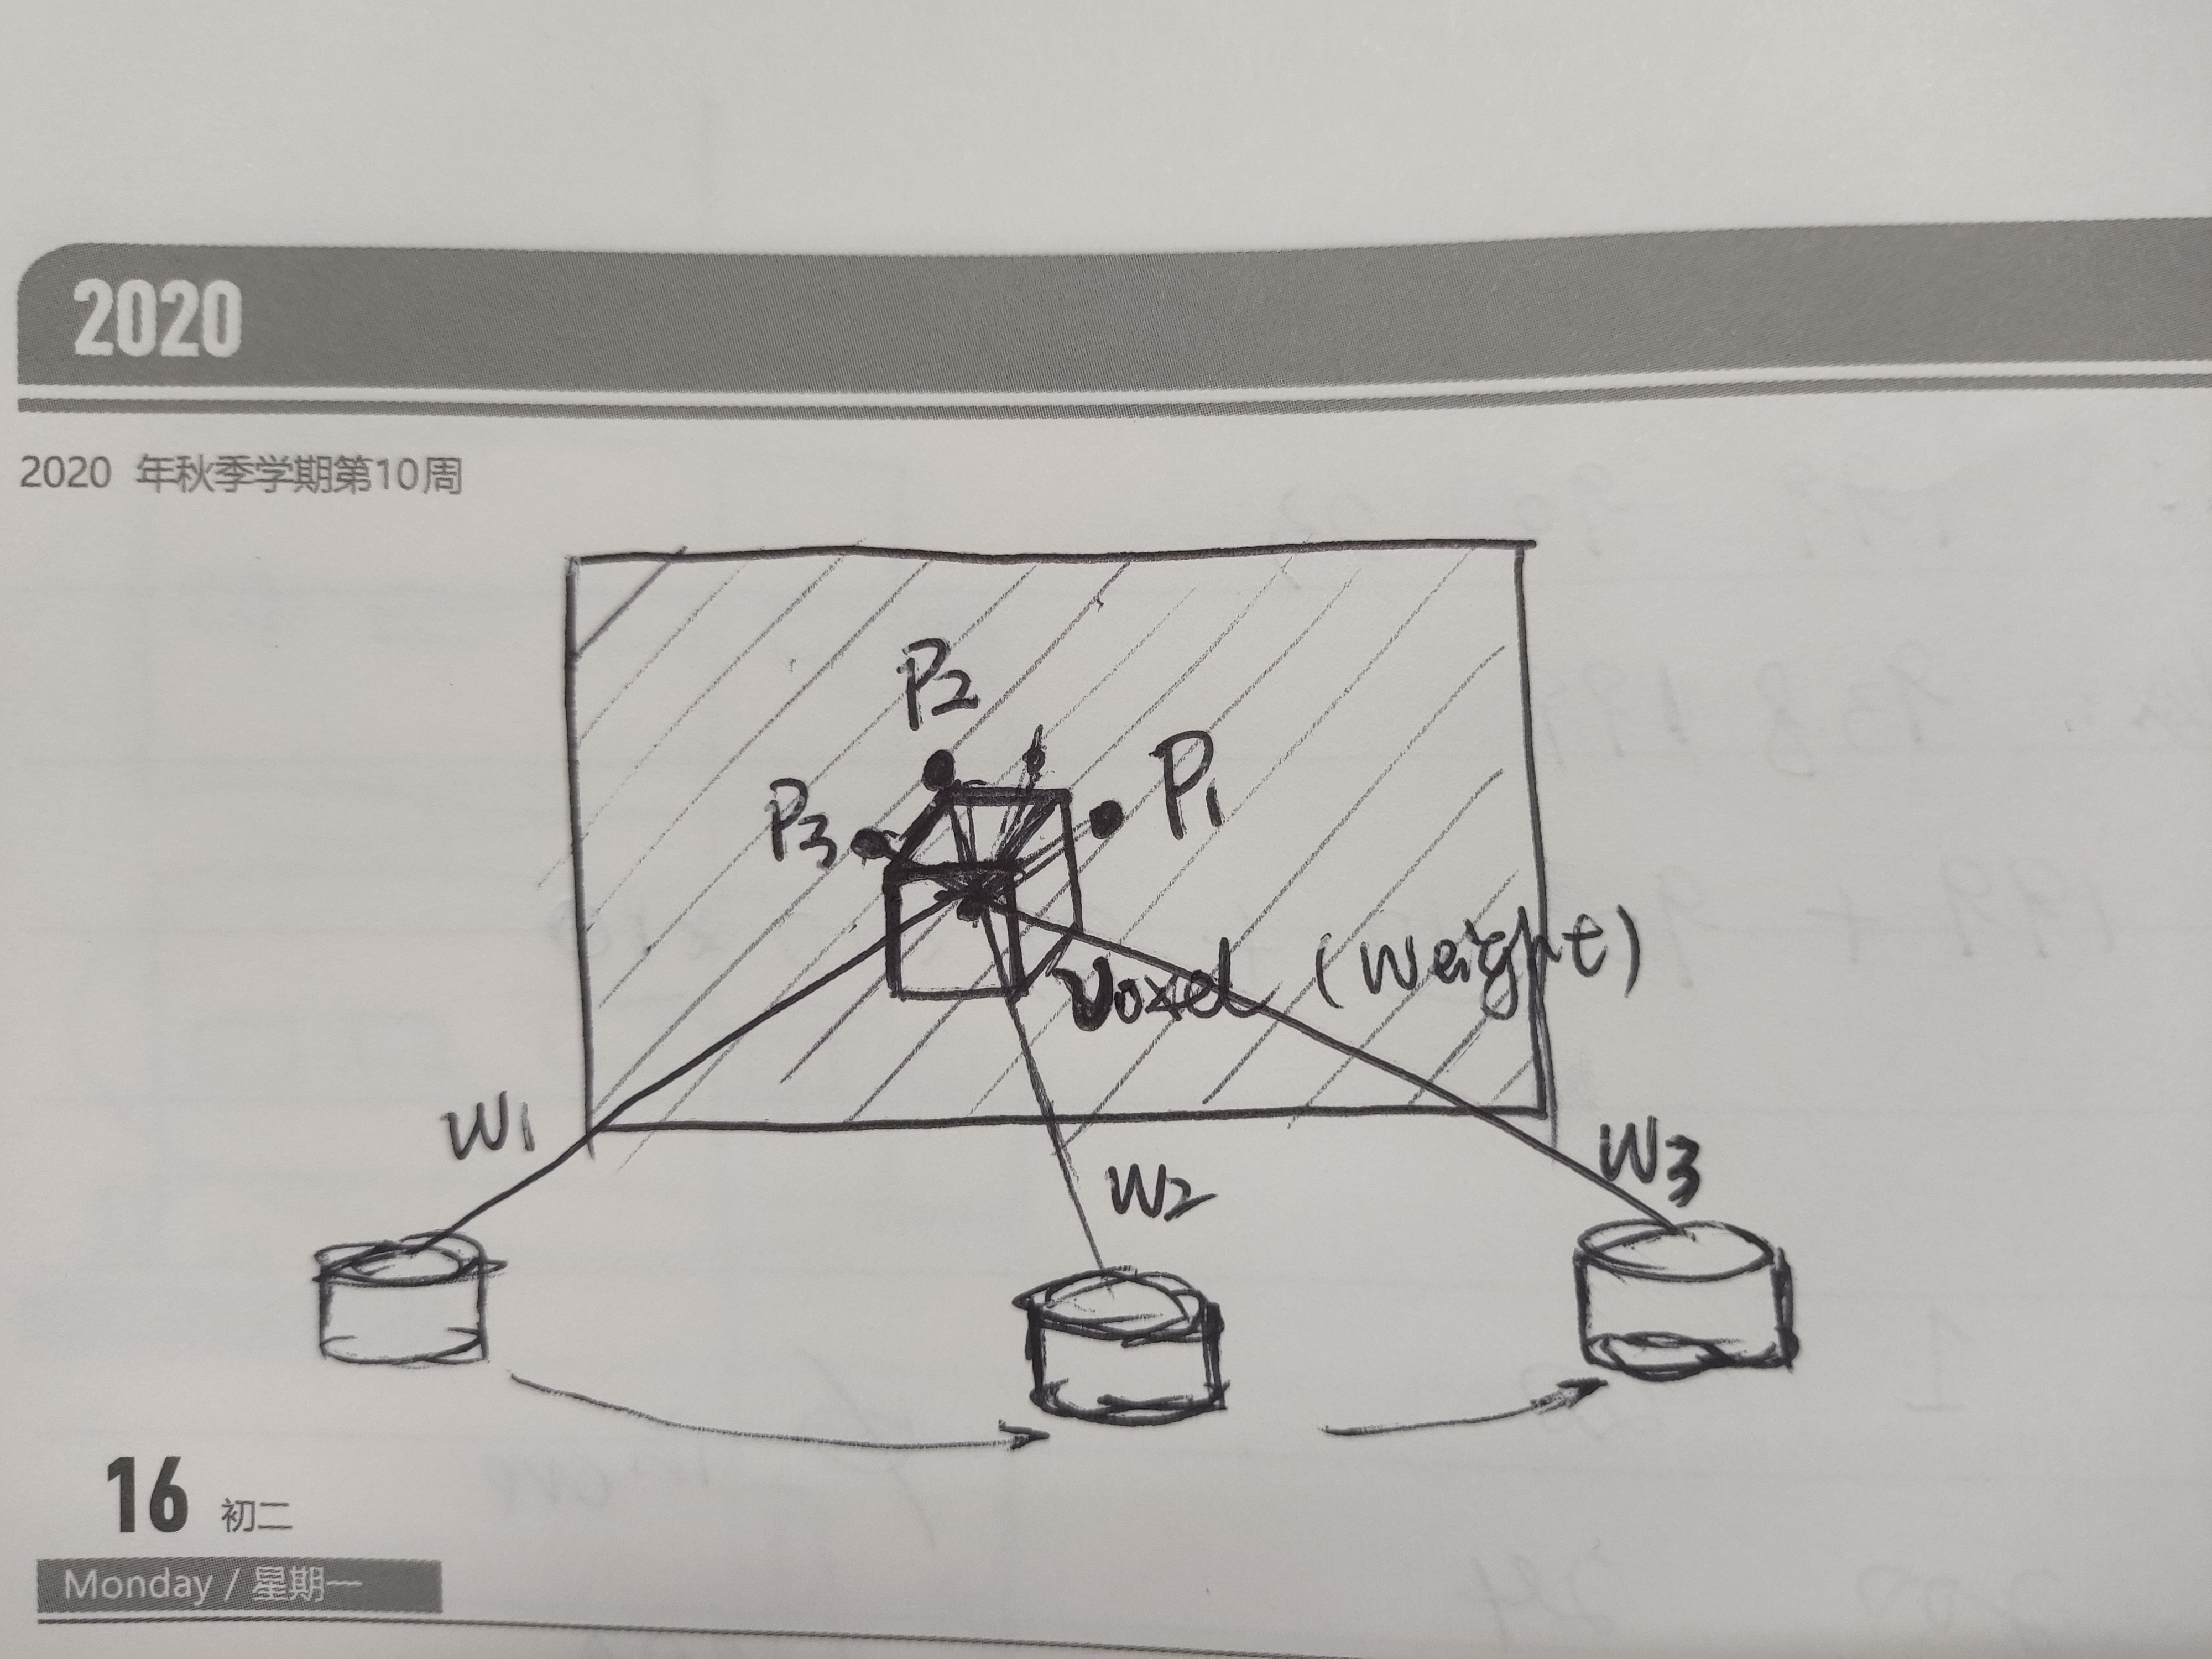 2020
2020 年秋季学期第10周
P2
P3
P1
Voxel (Weight)
W1
W2
W3
16 初二
Monday / 星期一